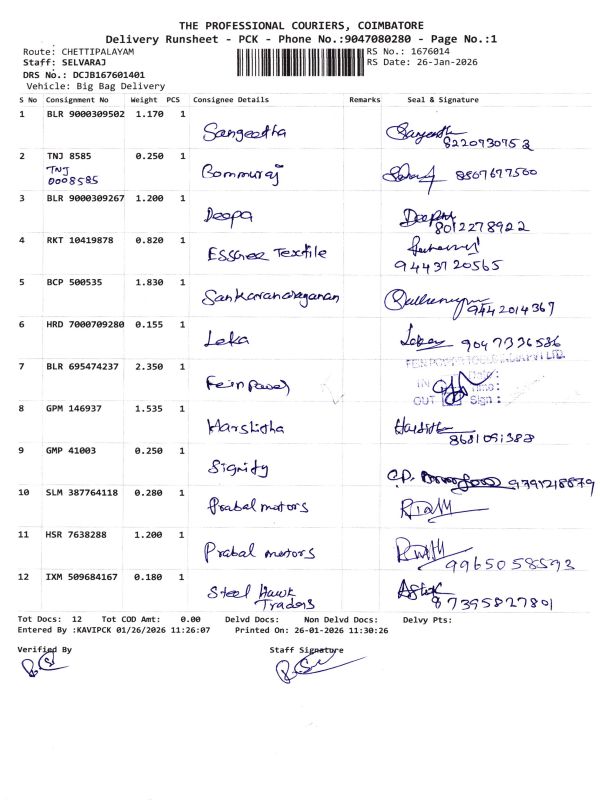 THE PROFESSIONAL COURIERS, COIMBATORE
Delivery Runsheet - PCK - Phone No.:9047080280 - Page No.:1
Route: CHETTIPALAYAM RS No.: 1676014
Staff: SELVARAJ RS Date: 26-Jan-2026
DRS No.: DCJB167601401
Vehicle: Big Bag Delivery
S No Consignment No Weight PCS Consignee Details Remarks Seal & Signature
1 BLR 9000309502 1.170 1
Sangeetha
8220930753
2 TNJ 8585 0.250 1
TNJ
0008585
Bommuraj 8507677500
3 BLR 9000309267 1.200 1
Deepa
8012278922
4 RKT 10419878 0.820 1
Essgree Textile
9443720565
5 BCP 500535 1.830 1
Sankaranarayanan
9442014367
6 HRD 7000709280 0.155 1
Leka 9047336536
7 BLR 695474237 2.350 1
Feinpower
IN
OUT Sign :
8 GPM 146937 1.535 1
Harshidha
8681091388
9 GMP 41003 0.250 1
Signity
9791218879
10 SLM 387764118 0.280 1
Prabal motors
11 HSR 7638288 1.200 1
Prabal motors
9965058593
12 IXM 509684167 0.180 1
Steel Hawk
Traders
87395827801
Tot Docs: 12 Tot COD Amt: 0.00 Delvd Docs: Non Delvd Docs: Delvy Pts:
Entered By :KAVIPCK 01/26/2026 11:26:07 Printed On: 26-01-2026 11:30:26
Verified By Staff Signature